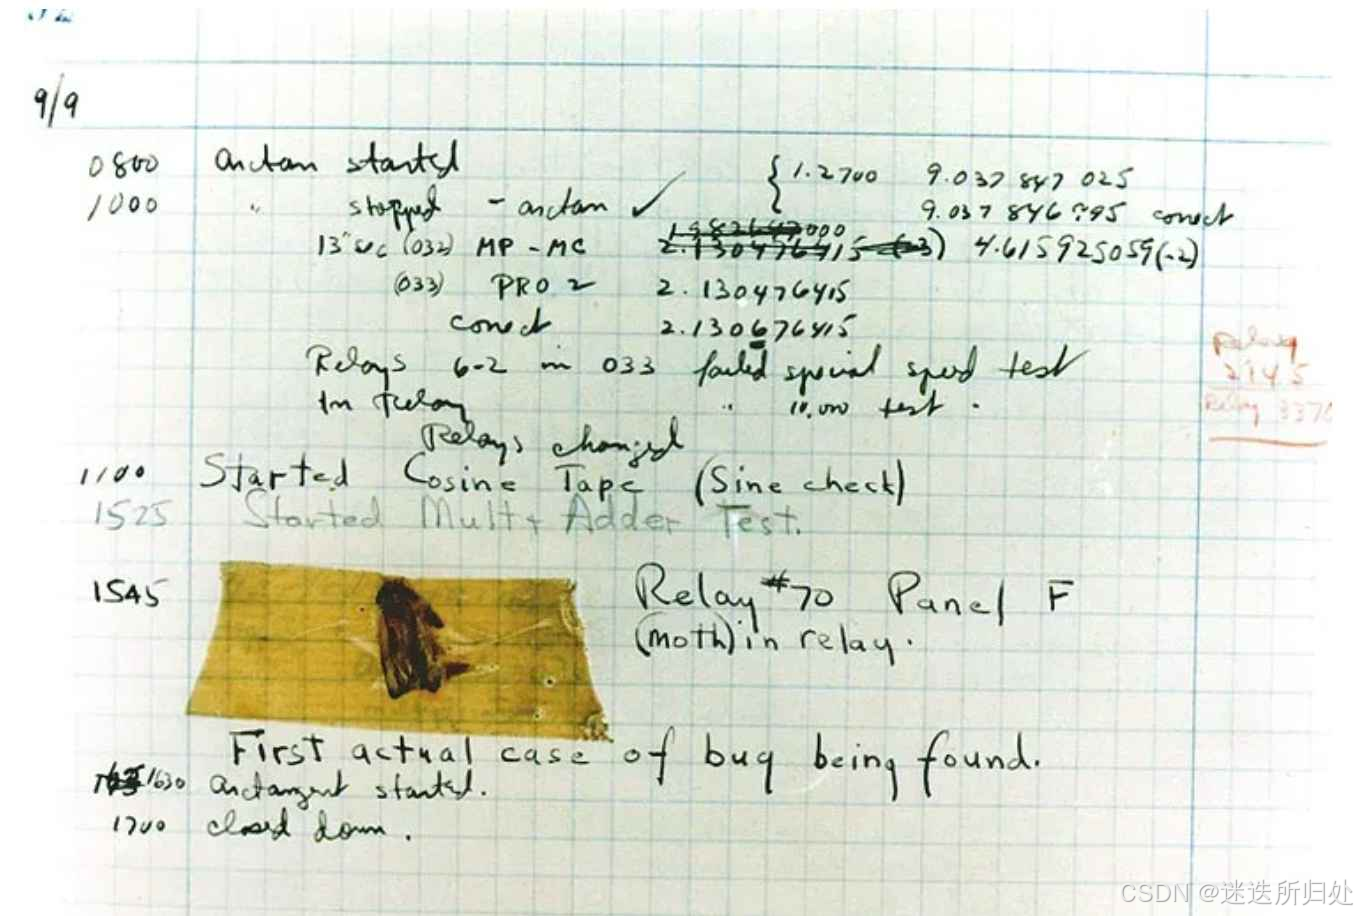 9/9
0800 arctan started { 1.2700 9.037 847 025
1000 " stopped - arctan ✓ 9.037 846 795 correct
13"uc (032) MP - MC 2.130476415 (-3) 4.615925059(-2)
(033) PRO 2 2.130476415
correct 2.130676415
Relays 6-2 in 033 failed special speed test
In Relay " 10,000 test.
Relays changed
Relay
2145
Relay 3370
1100 Started Cosine Tape (Sine check)
1525 Started Mult + Adder Test.
1545 Relay #70 Panel F
(moth) in relay.
First actual case of bug being found.
1630 arctangent started.
1700 closed down.
CSDN @迷迭所归处